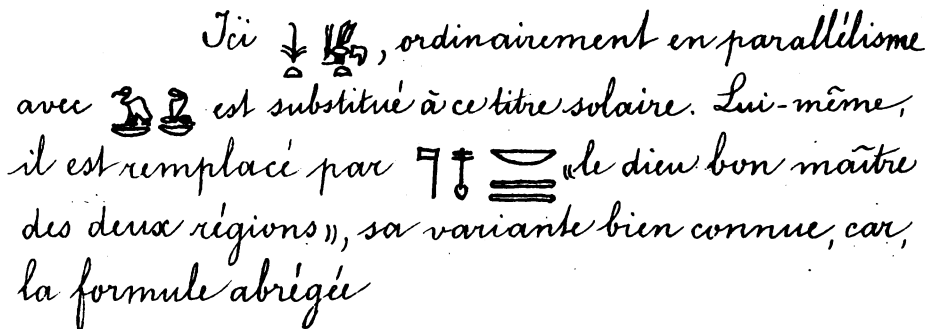 Ici 𓇓𓏏𓆤𓏏, ordinairement en parallélisme
avec 𓅒 est substitué à ce titre solaire. Lui-même,
il est remplacé par 𓊹𓄤𓎟𓇿𓇿 «le dieu bon maître
des deux régions», sa variante bien connue, car,
la formule abrégée